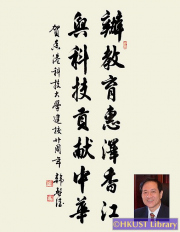 辦教育惠澤香江
與科技貢献中華
賀香港科技大學建校廿周年 韓啓德
@HKUST Library